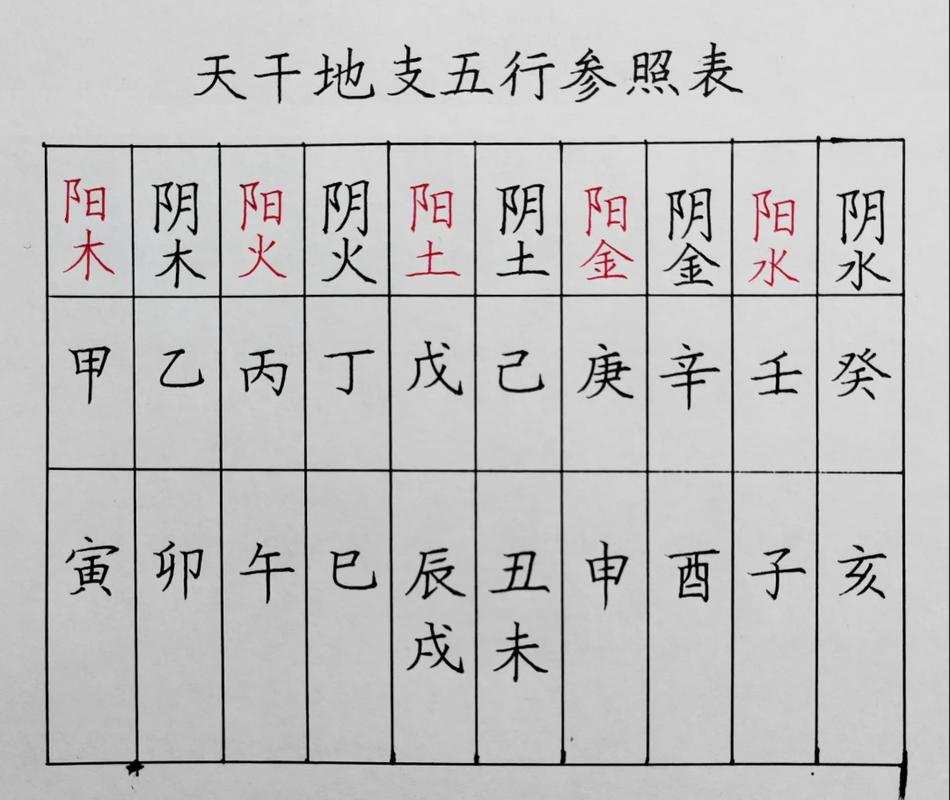 天干地支五行参照表
阳木 阴木 阳火 阴火 阳土 阴土 阳金 阴金 阳水 阴水
甲 乙 丙 丁 戊 己 庚 辛 壬 癸
寅 卯 午 巳 辰 丑 申 酉 子 亥
戌 未